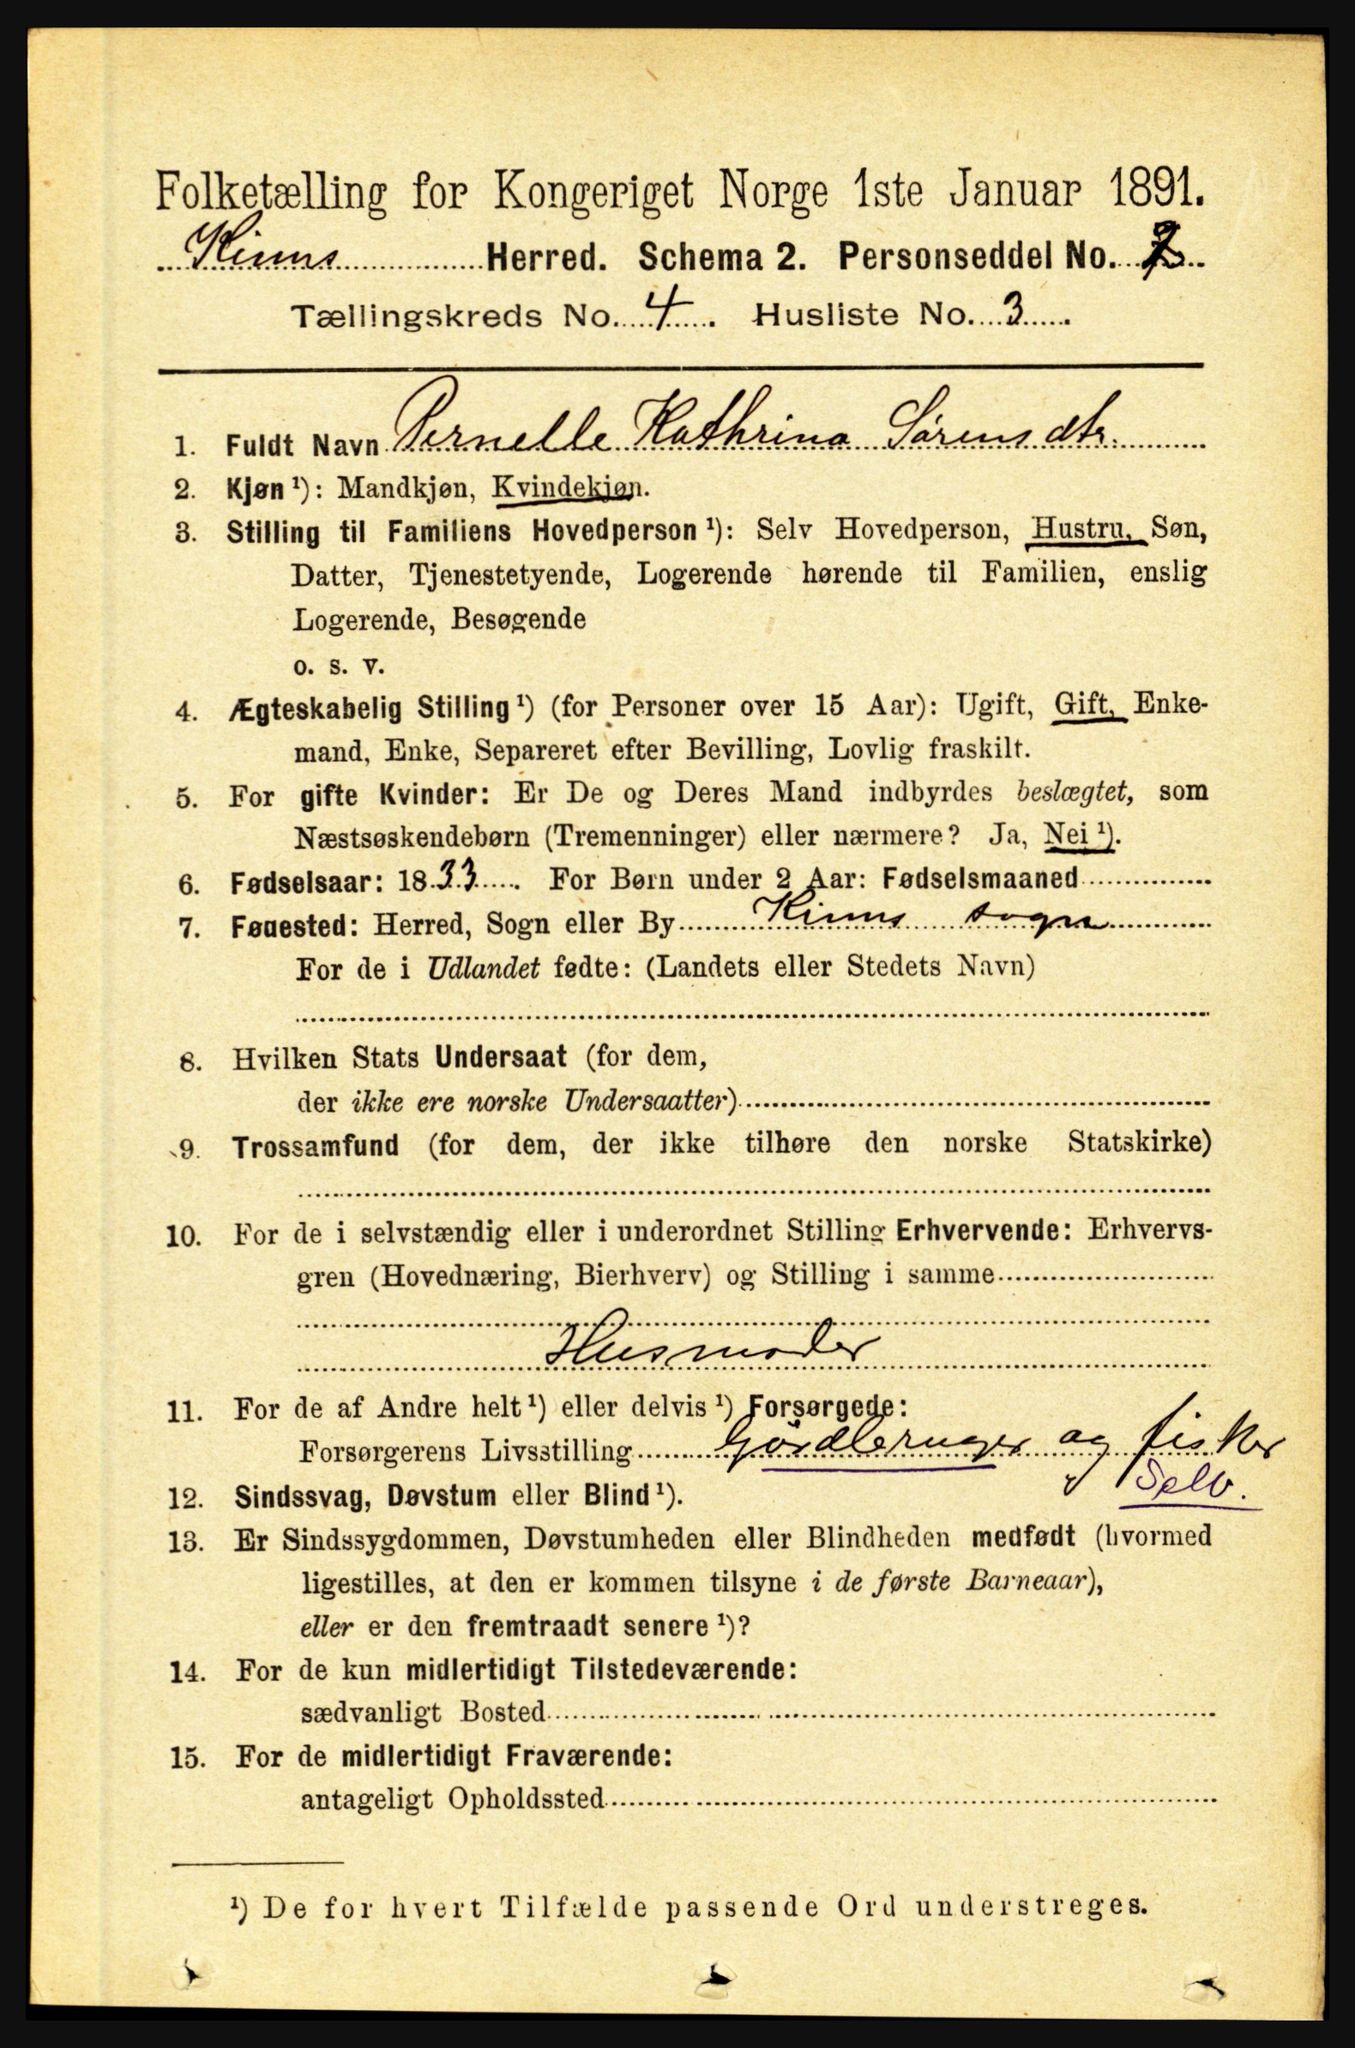 Folketælling for Kongeriget Norge 1ste Januar 1891.
Kinns Herred. Schema 2. Personseddel No. 2
Tællingskreds No. 4. Husliste No. 3.
1. Fuldt Navn Pernelle Kathrina Sørensdtr.
2. Kjøn ¹): Mandkjøn, Kvindekjøn.
3. Stilling til Familiens Hovedperson ¹): Selv Hovedperson, Hustru, Søn,
Datter, Tjenestetyende, Logerende hørende til Familien, enslig
Logerende, Besøgende
o. s. v.
4. Ægteskabelig Stilling ¹) (for Personer over 15 Aar): Ugift, Gift, Enke-
mand, Enke, Separeret efter Bevilling, Lovlig fraskilt.
5. For gifte Kvinder: Er De og Deres Mand indbyrdes beslægtet, som
Næstsøskendebørn (Tremenninger) eller nærmere? Ja, Nei ¹).
6. Fødselsaar: 1833. For Børn under 2 Aar: Fødselsmaaned
7. Fødested: Herred, Sogn eller By Kinns sogn
For de i Udlandet fødte: (Landets eller Stedets Navn)
8. Hvilken Stats Undersaat (for dem,
der ikke ere norske Undersaatter)
9. Trossamfund (for dem, der ikke tilhøre den norske Statskirke)
10. For de i selvstændig eller i underordnet Stilling Erhvervende: Erhvervs-
gren (Hovednæring, Bierhverv) og Stilling i samme
Husmoder
11. For de af Andre helt ¹) eller delvis ¹) Forsørgede:
Forsørgerens Livsstilling Gårdbruger og fisker
Selv.
12. Sindssvag, Døvstum eller Blind ¹).
13. Er Sindssygdommen, Døvstumheden eller Blindheden medfødt (hvormed
ligestilles, at den er kommen tilsyne i de første Barneaar),
eller er den fremtraadt senere ¹)?
14. For de kun midlertidigt Tilstedeværende:
sædvanligt Bosted
15. For de midlertidigt Fraværende:
antageligt Opholdssted
¹) De for hvert Tilfælde passende Ord understreges.